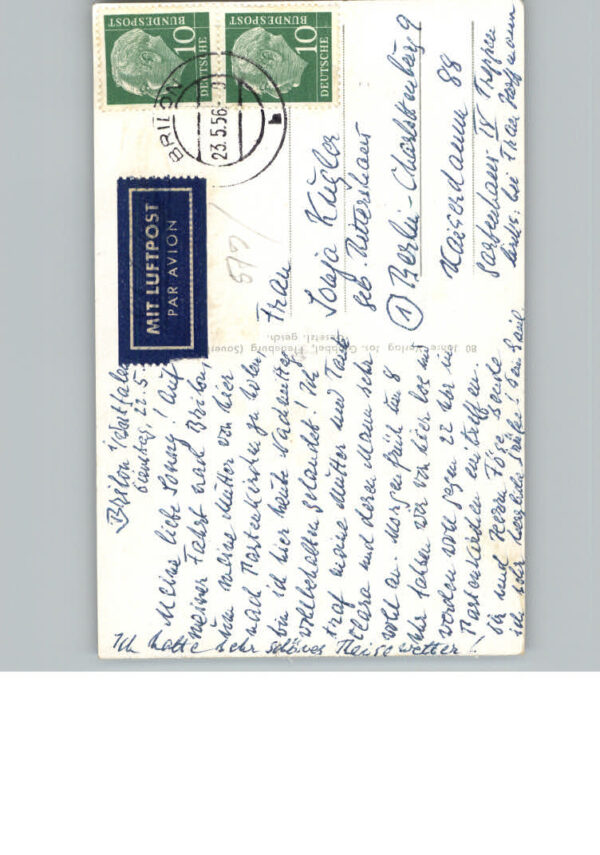 Brilon Westfalen
Dienstag, 22.5
Meine liebe Sonny! Auf
meiner Fahrt nach Brilon,
um meine Mutter von hier
nach Partenkirchen zu holen
bin ich hier heute Nachmittag
wohlbehalten gelandet! Ich
traf meine Mutter und Tante
Klara und deren Mann sehr
wohl an. Morgen früh um 8
Uhr fahren wir von hier los und
werden wohl gegen 22 Uhr in
Partenkirchen eintreffen
Dir und Herrn
ich sehr herzliche Grüße!
Ich hatte sehr schönes Reisewetter!
MIT LUFTPOST
PAR AVION
577/
DEUTSCHE
BUNDESPOST
10
DEUTSCHE
BUNDESPOST
10
BRILON
23.5.56
b
Frau
Sonja Kugler
geb. Rittershaus
① Berlin-Charlottenburg 9
Kaiserdamm 88
Gartenhaus IV Treppen
bei Frau
80 Jahre Verlag Jos. Grobbel, Fredeburg (Sauerl
Gesetzl. gesch.